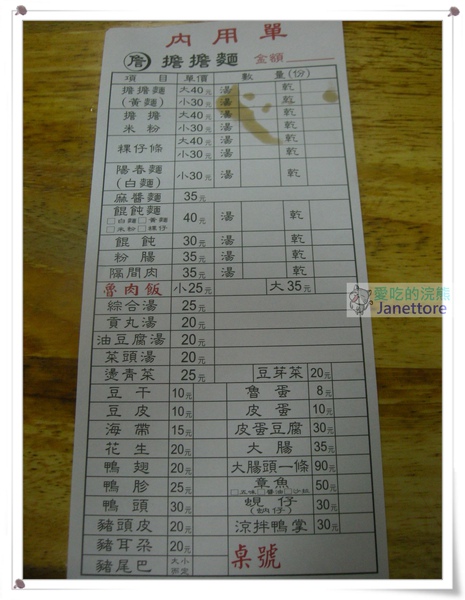 內用單
詹 擔擔麵 金額
項目 單價 數量(份)
擔擔麵 大40元 湯 乾
(黃麵) 小30元 湯 乾
擔擔 大40元 湯 乾
米粉 小30元 湯 乾
粿仔條 大40元 湯 乾
小30元 湯 乾
陽春麵
(白麵) 小30元 湯 乾
麻醬麵 35元
餛飩麵 40元 湯 乾
□白麵□黃麵
□米粉□粿仔
餛飩 30元 湯 乾
粉腸 35元 湯 乾
隔間肉 35元 湯 乾
魯肉飯 小25元 大35元
綜合湯 25元
貢丸湯 20元
油豆腐湯 20元
菜頭湯 20元
燙青菜 25元 豆芽菜 20元
豆干 10元 魯蛋 8元
豆皮 10元 皮蛋 10元
海帶 15元 皮蛋豆腐 30元
花生 20元 大腸 35元
鴨翅 20元 大腸頭一條 90元
鴨胗 25元 章魚 50元
□五味□醬油□沙拉
鴨頭 30元 蜆仔 30元
(蚋仔)
豬頭皮 20元 涼拌鴨掌 30元
豬耳朵 20元 桌號
豬尾巴 大小
愛吃的浣熊
Janettore